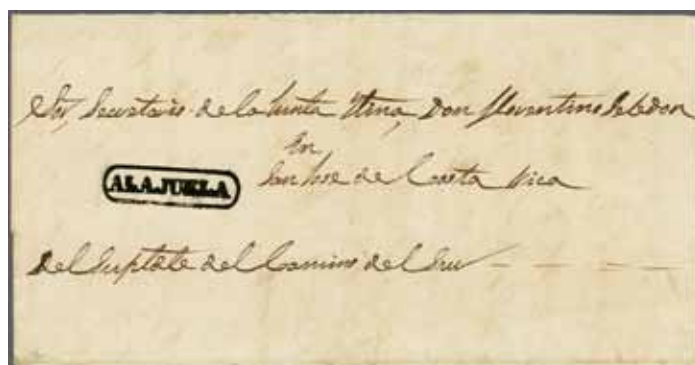 Sor, Secretario de la Junta Itina, Don Florentino Seledon
En
ALAJUELA
San Jose de Costa Rica
Del Suptdte del Camino del